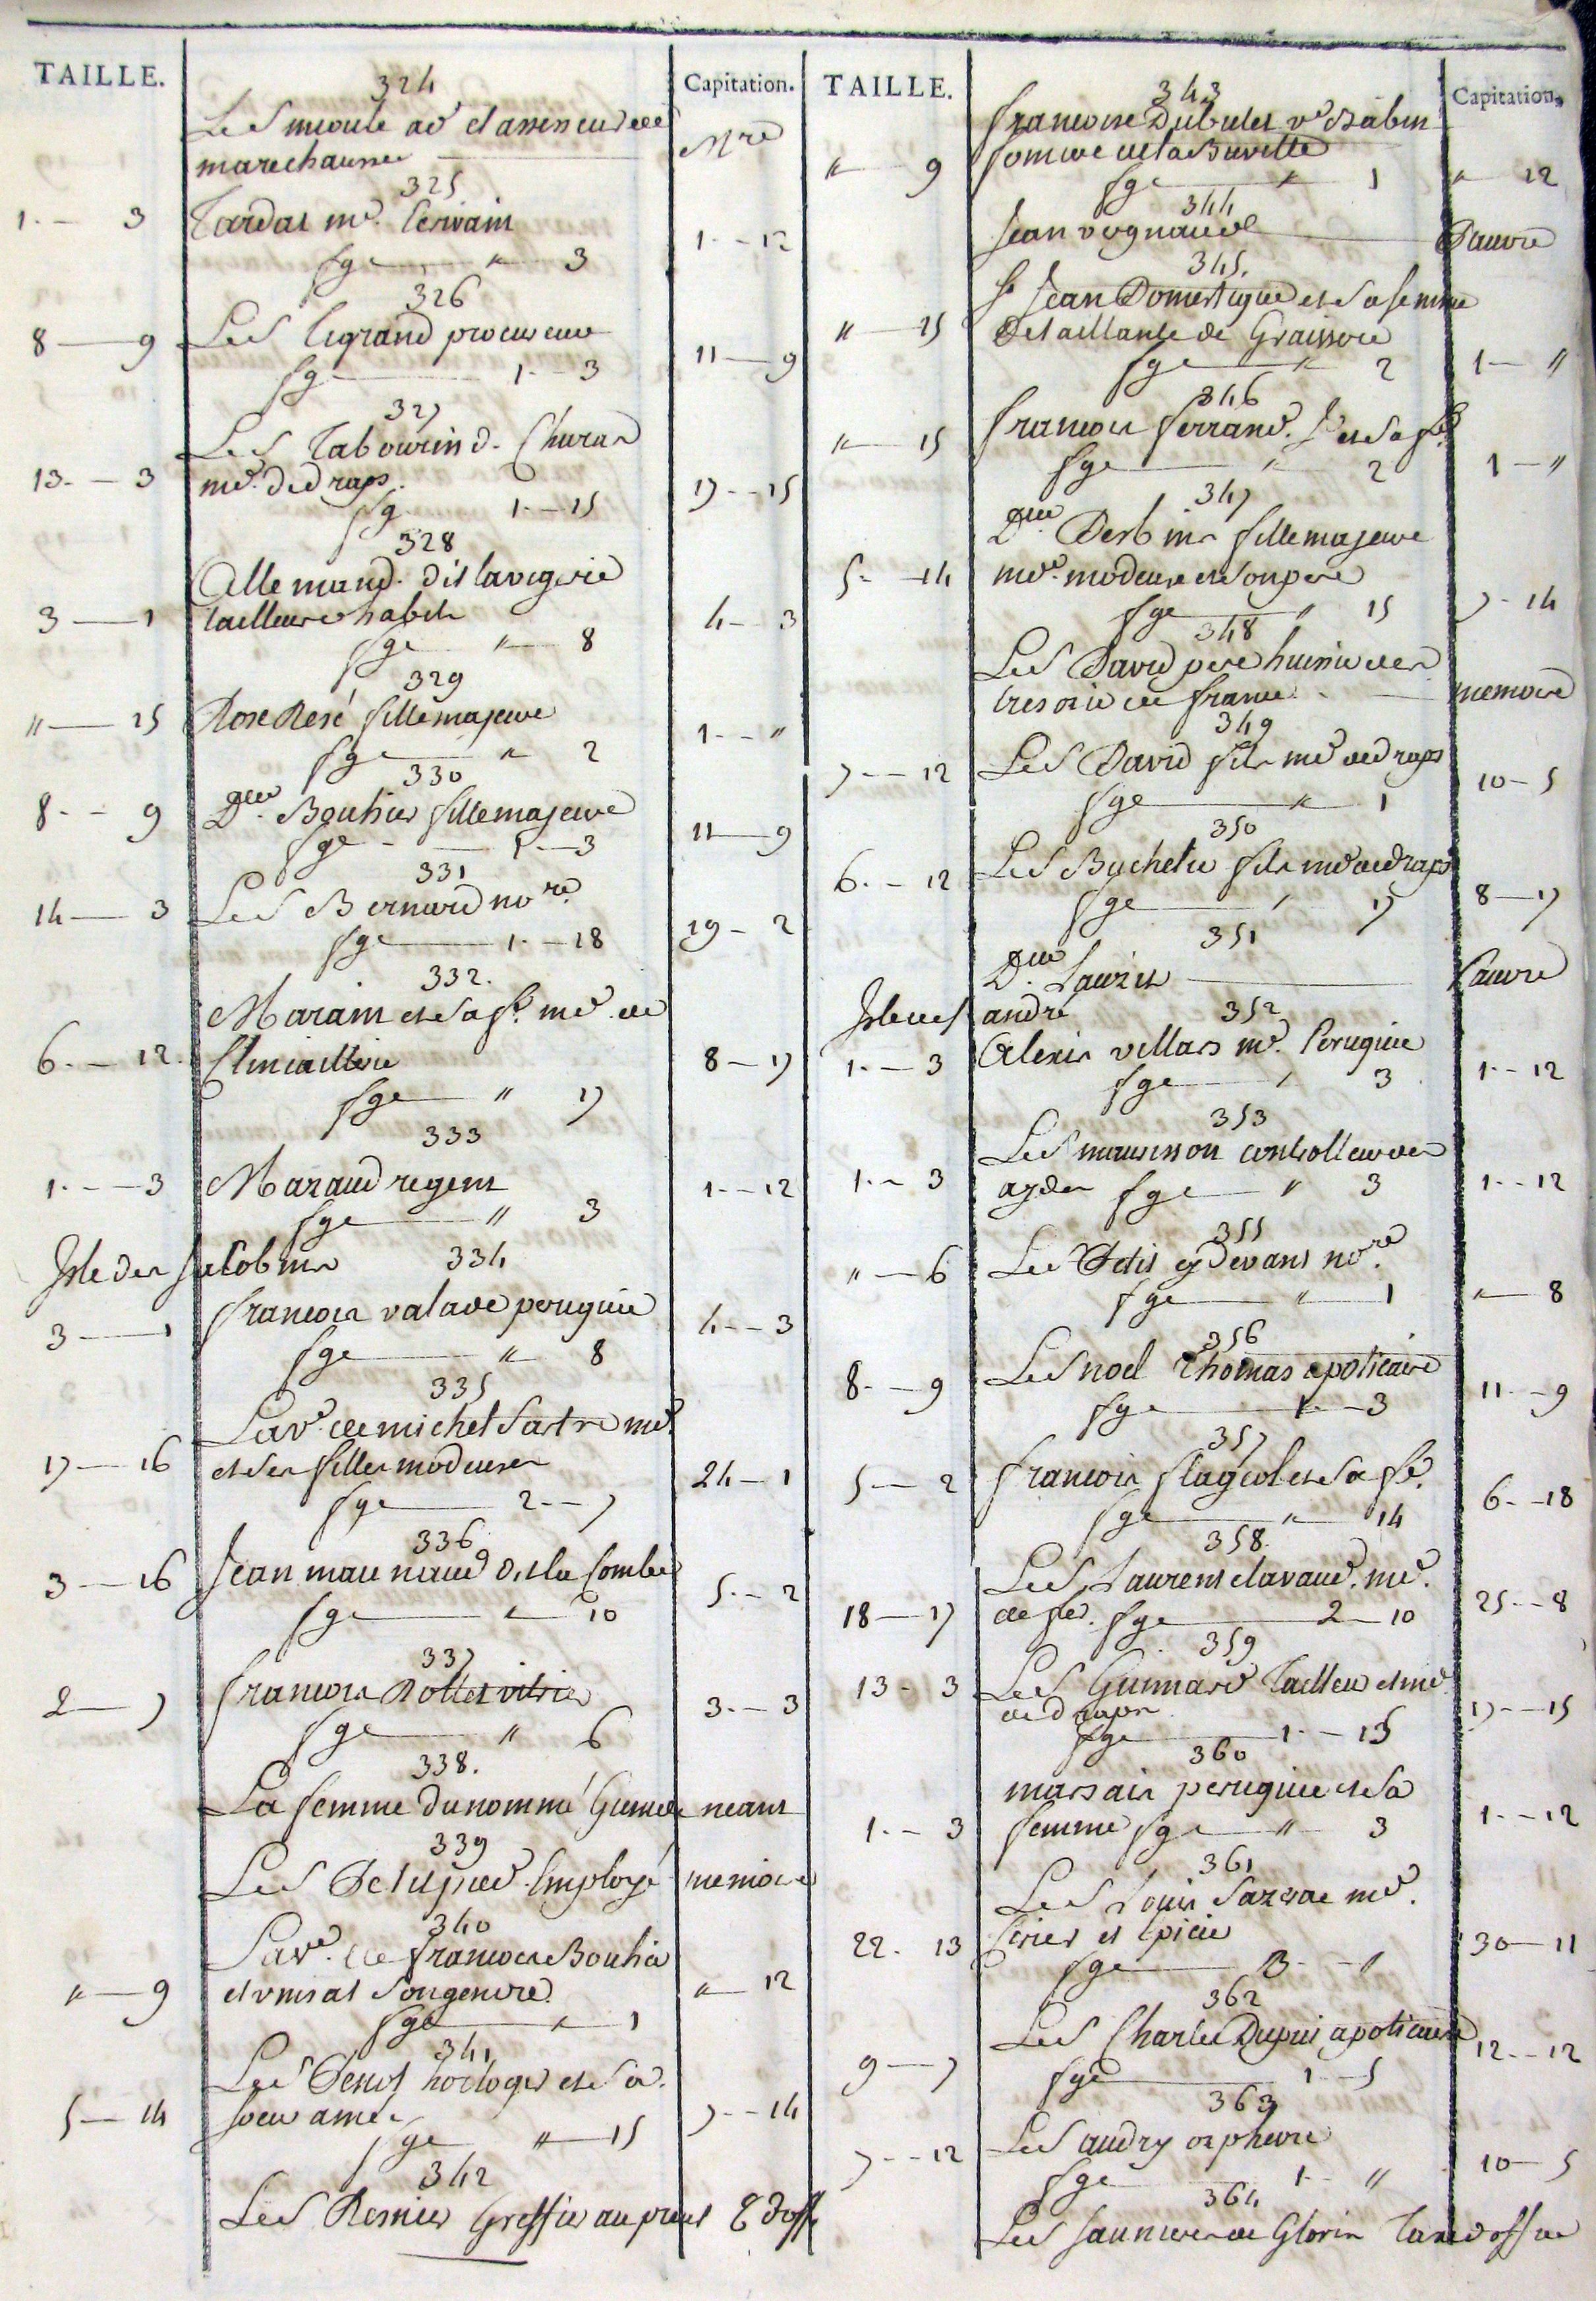 TAILLE. Capitation.
324
Le S meoule av et assesseur de
marechaussee Mre
325
1 - 3 Tardat md. Ecrivain 1 - 12
fge " 3
326
8 - 9 Le S legrand procureur 11 - 9
fge 1 - 3
327
Le S Tabourin d. Churas
13 - 3 md. de draps. 17 - 15
fg 1 - 15
328
Allemand. dit lavigerie
3 - 1 tailleur d habits 4 - 3
fge " 8
329
" - 15 Rose Resé fille majeure 1 - "
fge " 2
330
8 - 9 Dlle. Bouhier fille majeure 11 - 9
fge 1 - 3
331
14 - 3 Le S Bernard nore. 19 - 2
fge 1 - 18
332.
Marain et sa fe. md. de
6 - 12. Clincaillerie 8 - 17
fge " 17
333
1 - 3 Maraud regent 1 - 12
fge " 3
Isle des Jacobins 334
3 - 1 francois valade peruquier 4 - 3
fge " 8
335
La ve de michel Sartre md.
17 - 16 et ses filles modeuses 24 - 1
fge 2 - 7
336
3 - 16 Jean maunaud dit la Combe 5 - 2
fge " 10
337
2 - 7 francois Rollet vitrier 3 - 3
fge " 6
338.
La femme du nommé neant
339
Le S Employé memoire
340
La ve. de francois Bouhier
" - 9 et son gendre " 12
fge " 1
341
Le S horloger et sa
5 - 14 soeur ainée 7 - 14
fge " 15
342
Le S Resnier Greffier au
TAILLE. Capitation.
343
francoise Dubulet ve Babin
" 9 " 12
fge " 1
344
Jean vergnaud Pauvre
345.
Sr Jean Domestique et sa femme
" - 15 Detaillante de Graisserie 1 - "
fge " 2
346
" - 15 francois ferrand. Sr et sa fe. 1 - "
fge " 2
347
Dlle. Desbins fille majeure
5 - 14 mde. modeuse et son pere 7 - 14
fge " 15
348
Le S David pere huissier des
tresorier de france memoire
349
7 - 12 Le S David fils md de draps 10 - 5
fge " 1
350
6 - 12 Le S Bychelie fils md de draps 8 - 17
fge " 17
351
Dlle. Lauzet Pauvre
Isle de S andré 352
1 - 3 Alexis villars md. Peruquier 1 - 12
fge " 3
353
Le S maurisson controlleur des
1 - 3 aydes fge " 3 1 - 12
355
" - 6 Le S Petit cy devant nore. " 8
fge " 1
356
8 - 9 Le S noel Thomas apoticaire 11 - 9
fge 1 - 3
357
5 - 2 francois flageol et sa fe. 6 - 18
fge " 14
358.
Le S Laurens clavaud. md.
18 - 17 de fer. fge 2 - 10 25 - 8
359
13 - 3 Le S Guimard Tailleur et md 17 - 15
de draps
fge 1 - 15
360
marsais peruquier et sa
1 - 3 femme fge " 3 1 - 12
361
Le S Louis Sazerac md.
22 - 13 Cirier et Epicier 30 - 11
fge 3 - 1
362
Le S Charles Dupuis apoticaire
9 - 7 fge 1 - 5 12 - 12
363
7 - 12 Le S audry orphevre 10 - 5
fge 1 - "
364
Le S Saunier de Glorin Taxe d office